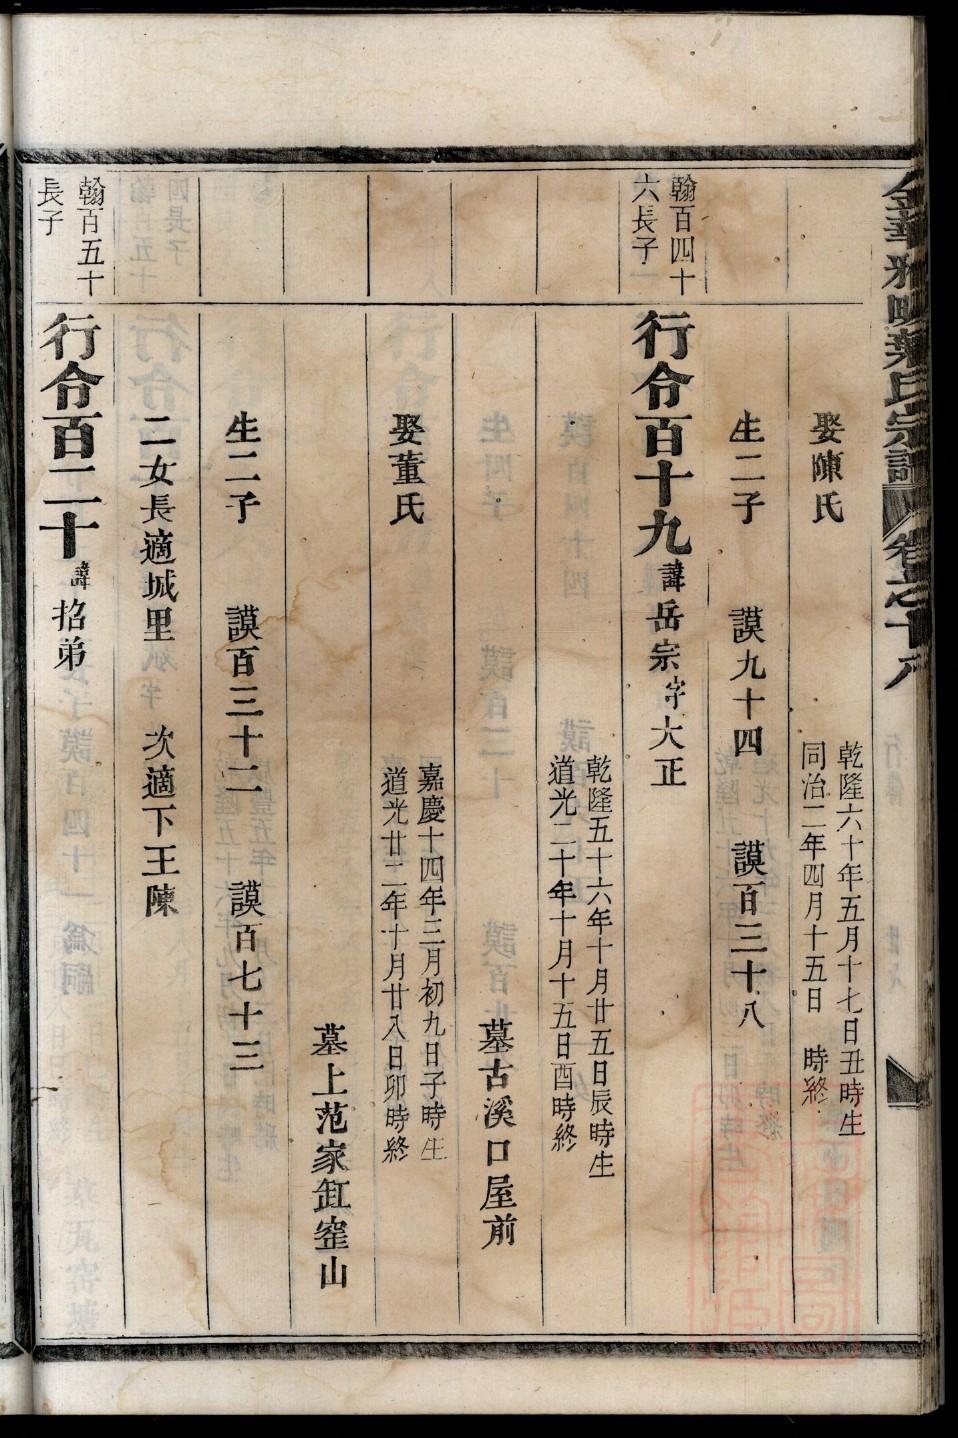 葉氏宗譜 卷之十八
娶陳氏
乾隆六十年五月十七日丑時生
同治二年四月十五日 時終
生二子 謨九十四 謨百三十八
翰百四十
六長子
行令百十九 諱岳宗 字大正
乾隆五十六年十月廿五日辰時生
道光二十年十月十五日酉時終
墓古溪口屋前
娶董氏
嘉慶十四年三月初九日子時生
道光廿二年十月廿八日卯時終
墓上范家缸窰山
生二子 謨百三十二 謨百七十三
二女長適城里 次適下王陳
翰百五十
長子
行令百二十 諱招弟